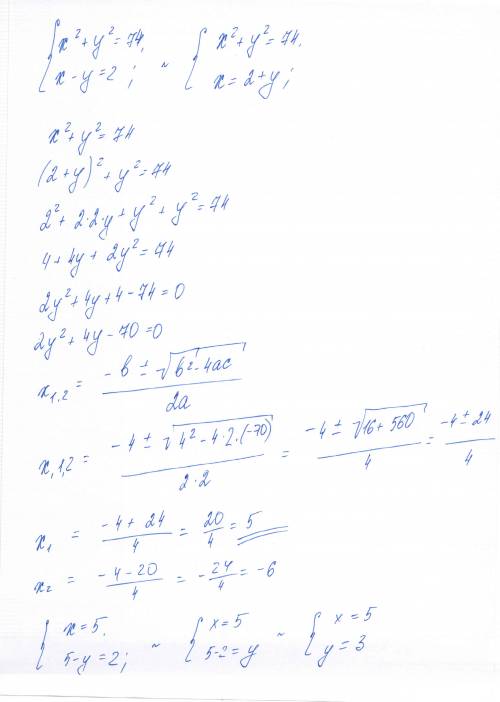 { x² + y² = 74, ~ { x² + y² = 74.
x - y = 2; x = 2 + y;
x² + y² = 74
(2 + y)² + y² = 74
2² + 2·2·y + y² + y² = 74
4 + 4y + 2y² = 74
2y² + 4y + 4 - 74 = 0
2y² + 4y - 70 = 0
x₁,₂ = (-b ± √(b² - 4ac)) / 2a
x,₁,₂ = (-4 ± √(4² - 4·2·(-70))) / 2·2 = (-4 ± √(16 + 560)) / 4 = (-4 ± 24) / 4
x₁ = (-4 + 24) / 4 = 20/4 = 5
x₂ = (-4 - 20) / 4 = -24/4 = -6
{ x = 5. ~ { x = 5 ~ { x = 5
5 - y = 2; 5 - 2 = y y = 3